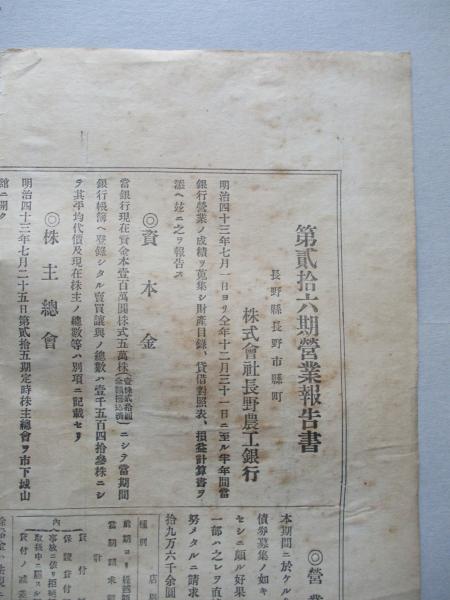 第貳拾六期營業報告書
長野縣長野市縣町
株式會社長野農工銀行
明治四十三年七月一日ヨリ仝年十二月三十一日ニ至ル半年間當
銀行營業ノ成績ヲ蒐集シ財産目錄、貸借對照表、損益計算書ヲ
添ヘ玆ニ之ヲ報告ス
◎資本金
當銀行現在資金本壹百萬圓株式五萬株(壹株貳拾圓全額拂込濟)ニシテ當期間
銀行帳簿ヘ登錄シタル賣買讓與ノ總數ハ壹千五百四拾參株ニシ
テ其平均代價及現在株主ノ總數等ハ別項ニ記載セリ
◎株主總會
明治四十三年七月二十五日第貳拾五期定時株主總會ヲ市下城山
館ニ開ク
◎營
本期間ニ於ケル
債券募集ノ如キ
セシニ頗ル好果
一部ハ之レヲ直
努メタルニ請求
拾九万六千余圓
種別
前期ヨリ
當期請求
計
貸付
內
保證貸付
取扱中ニ屬スル
貸付ノ